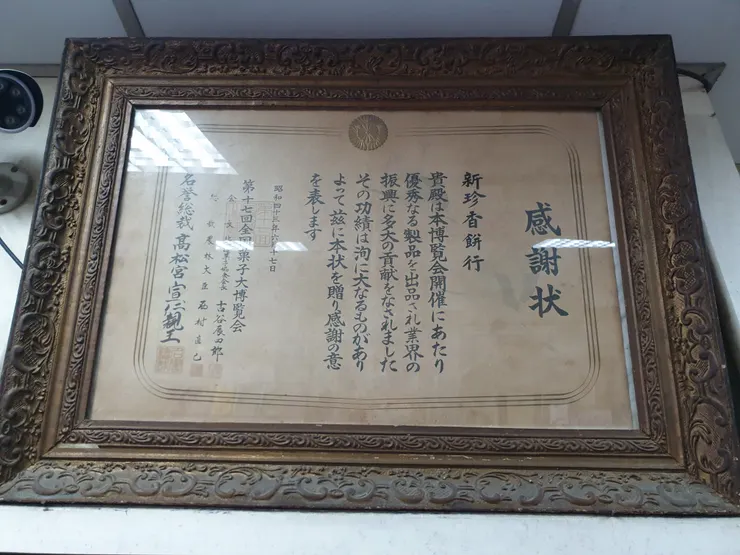 感謝状
新珍香餅行
貴殿は本博覧会開催にあたり
優秀なる製品を出品され業界の
振興に多大の貢献をなされました
その功績は洵に大なるものがあり
よって茲に本状を贈り感謝の意
を表します
第十七回全国菓子大博覧会
古谷辰四郎
名誉総裁高松宮宣仁親王